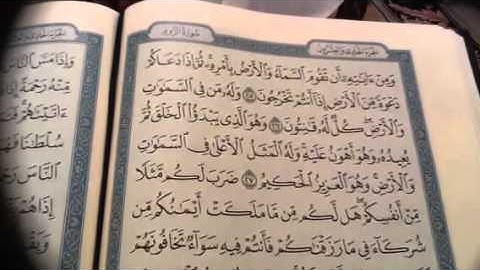 الجزء الحادي والعشرون
سورة الروم
وَمِنْ ءَايَـٰتِهِۦٓ أَن تَقُومَ ٱلسَّمَآءُ وَٱلْأَرْضُ بِأَمْرِهِۦ ۚ ثُمَّ إِذَا دَعَاكُمْ
دَعْوَةً مِّنَ ٱلْأَرْضِ إِذَآ أَنتُمْ تَخْرُجُونَ ٢٥ وَلَهُۥ مَن فِى ٱلسَّمَـٰوَٰتِ
وَٱلْأَرْضِ ۖ كُلٌّ لَّهُۥ قَـٰنِتُونَ ٢٦ وَهُوَ ٱلَّذِى يَبْدَؤُا۟ ٱلْخَلْقَ ثُمَّ
يُعِيدُهُۥ وَهُوَ أَهْوَنُ عَلَيْهِ ۚ وَلَهُ ٱلْمَثَلُ ٱلْأَعْلَىٰ فِى ٱلسَّمَـٰوَٰتِ
وَٱلْأَرْضِ ۚ وَهُوَ ٱلْعَزِيزُ ٱلْحَكِيمُ ٢٧ ضَرَبَ لَكُم مَّثَلًا
مِّنْ أَنفُسِكُمْ ۖ هَل لَّكُم مِّن مَّا مَلَكَتْ أَيْمَـٰنُكُم مِّن
شُرَكَآءَ فِى مَا رَزَقْنَـٰكُمْ فَأَنتُمْ فِيهِ سَوَآءٌ تَخَافُونَهُمْ
وَإِذَا مَسَّ ٱلنَّاسَ
مِّنْهُ رَحْمَةً إِذَا
ءَاتَيْنَـٰهُمْ ۚ
سُلْطَـٰنًا فَهُوَ
ٱلنَّاسَ رَحْمَةً
إِذَا هُمْ